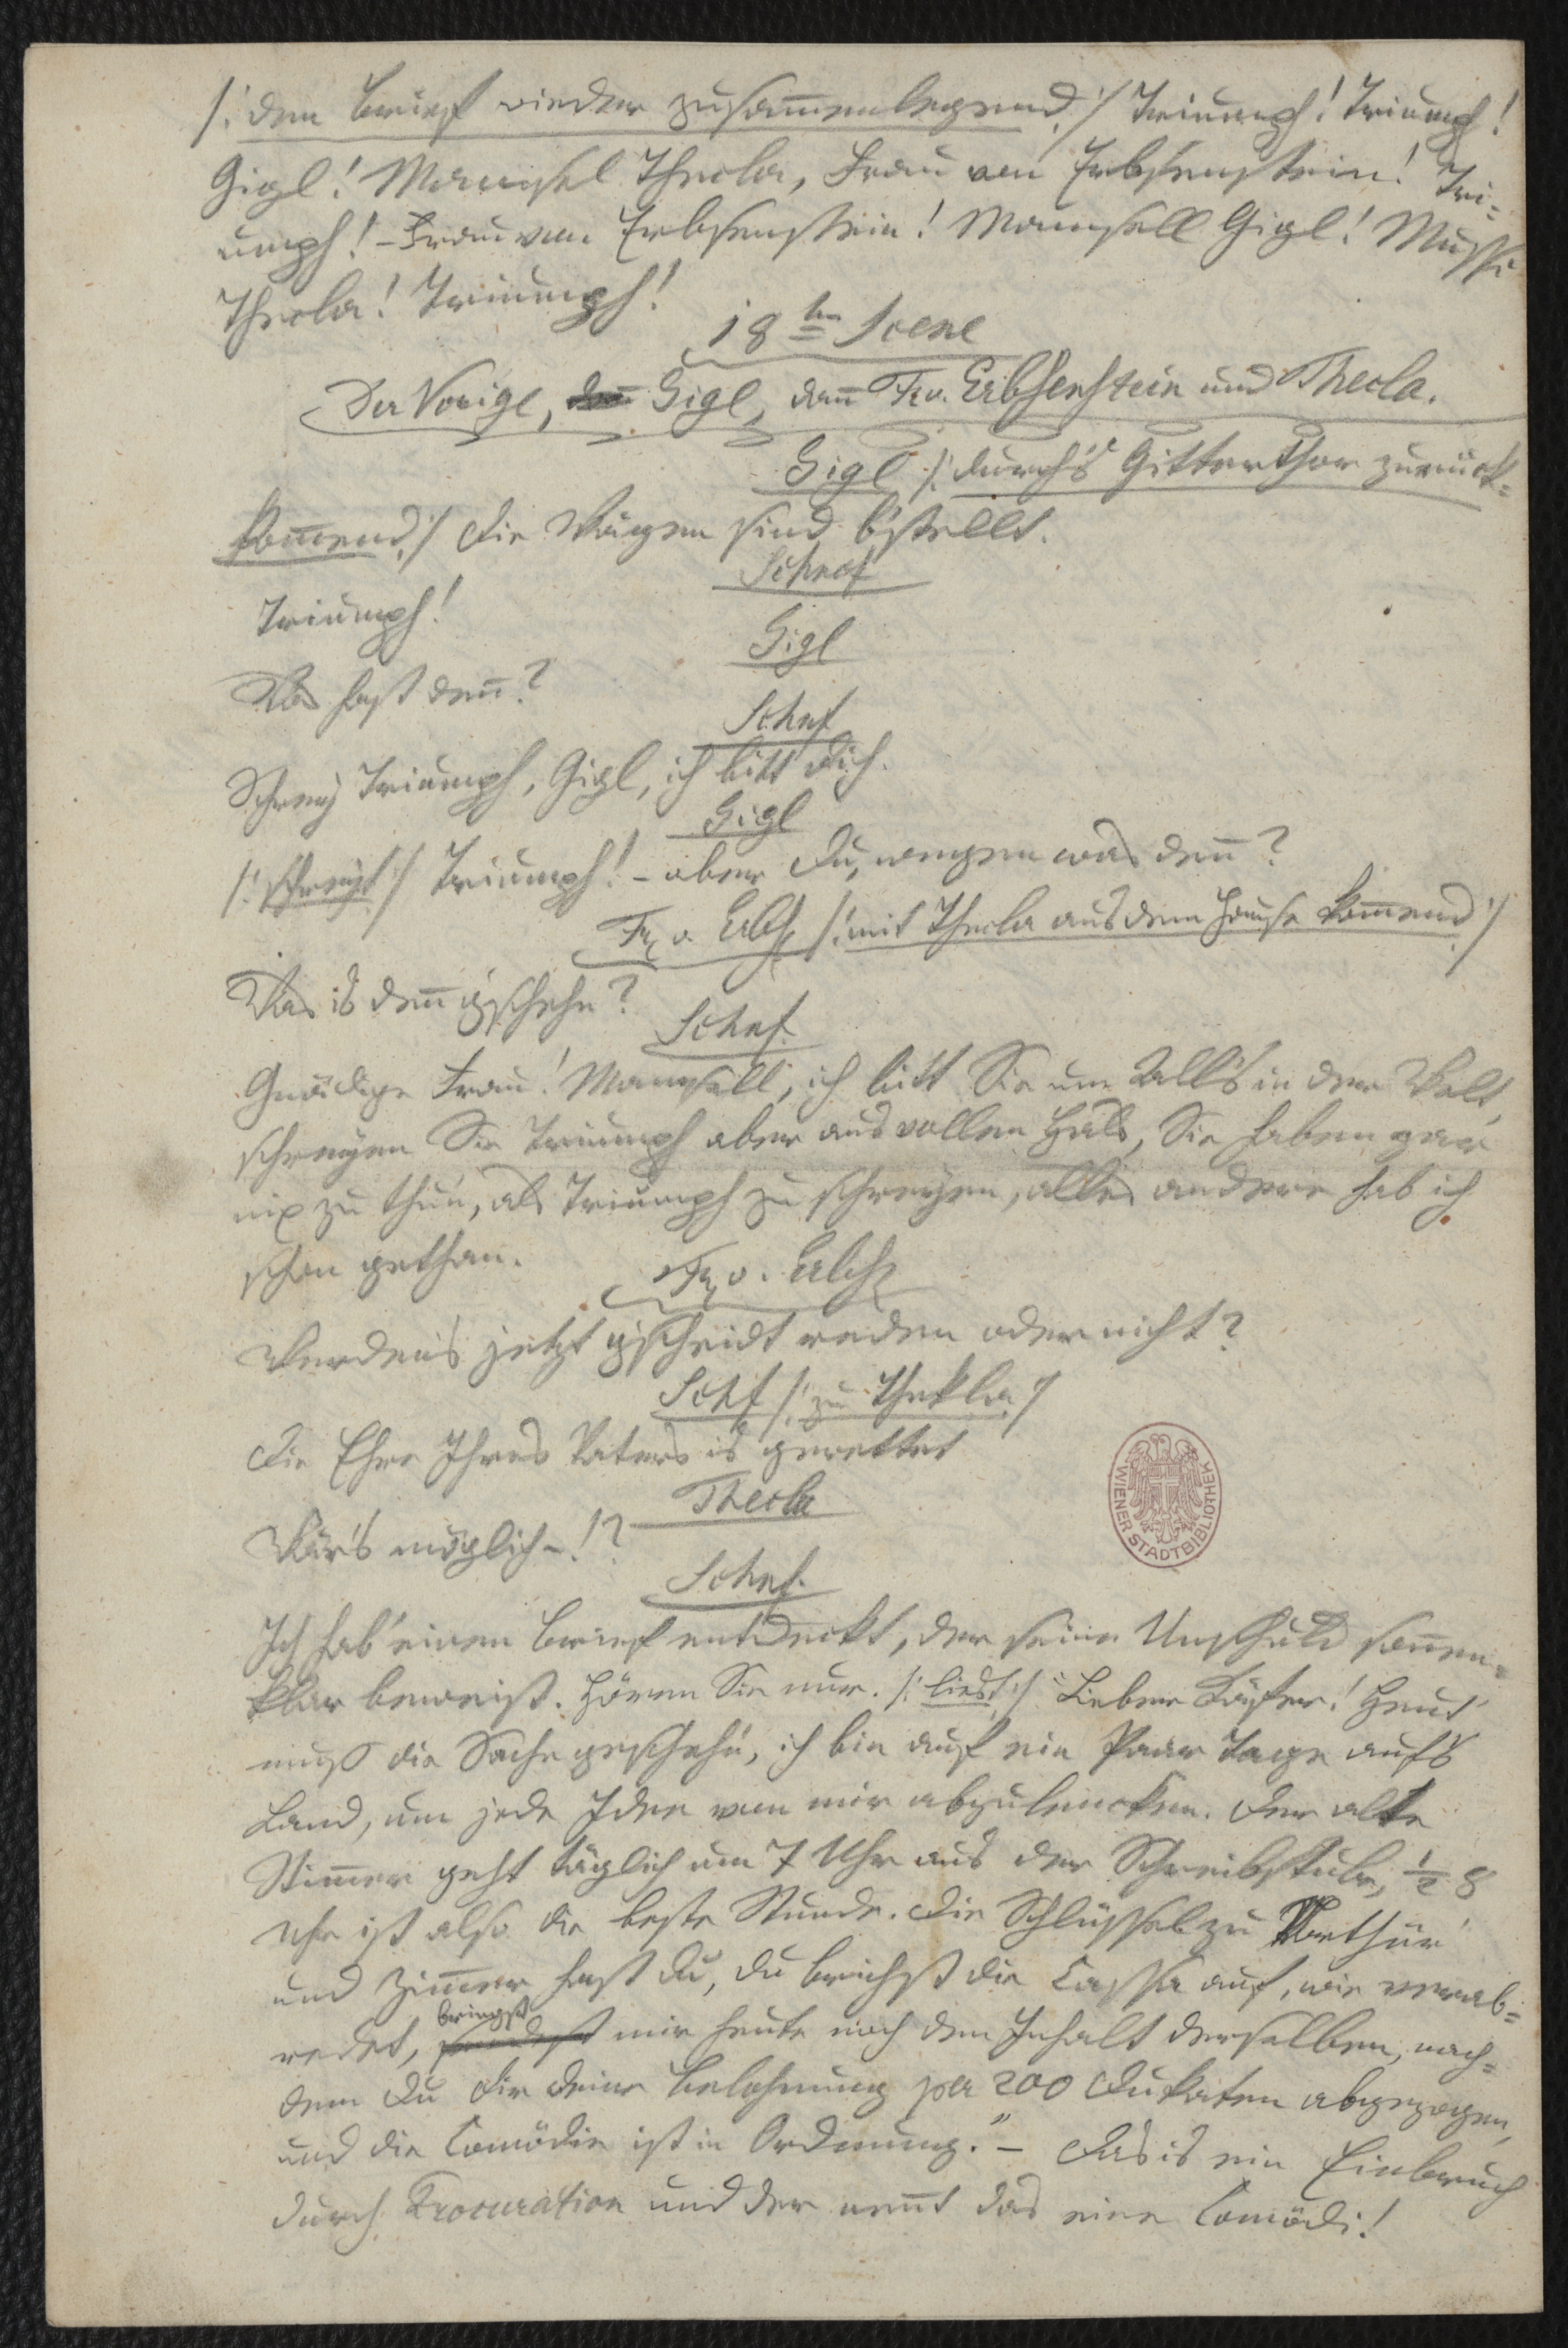 /: den Brief wieder zusam̄enlegend :/ Triumph! Triumph!
Gigl! Mamsel Thecla, Frau von Erbsenstein! Tri=
umph! – Frau von Erbsenstein! Mamsell Gigl! Mussi
Thecla! Triumph!
18te Scene
Der Vorige, Gigl, dan̄ Fr v. Erbsenstein und Thecla.
Gigl /: durch's Gitterthor zurück=
kom̄end :/ Die Wägen sind b'stellt.
Schnof
Triumph!
Gigl
Was hast den̄?
Schnf
Schrey Triumph, Gigl, ich bitt dich.
Gigl
/: schreyt :/ Triumph! – aber du, wegen was den̄?
Fr v. Erbs /: mit Thecla aus dem Hause kom̄end :/
Was is den̄ g'schehn?
Schnf.
Gnädige Frau! Mamsell, ich bitt Sie um Alls in der Welt,
schreyen Sie Triumph aber aus vollen Hals, Sie haben gar
nix zu thun, als Triumph zu schreyen, alles andere hab ich
schon gethan.
Fr v. Erbs
Werden's jetzt g'scheidt reden oder nicht?
Schf /: zu Thekla :/
Die Ehre Ihres Vaters is gerettet
Thecla
Wär's möglich –!?
Schnf.
Ich hab' einen Brief entdeckt, der seine Unschuld son̄en=
klar beweist. Hören Sie nur. /: liest :/ "Lieber Käfer! Heut'
muß die Sache geschehn, ich bin auf ein Paar Tage auf's
Land, um jede Idee von mir abzulencken. Der alte
Stim̄er geht täglich um 7 Uhr aus der Schreibstube, ½ 8
Uhr ist also die beste Stunde. Die Schlüssel zu Vorthür
und Zim̄er hast du, du brichst die Cassa auf, wie verab=
redet, bringst mir heute noch den Inhalt derselben, nach=
dem du dir deine Belohnung per 200 Dukaten abgezogen,
und die Comödie ist in Ordnung." – Das is ein Einbruch
durch Procuration und der nen̄t das eine Comödi!
WIENER STADTBIBLIOTHEK